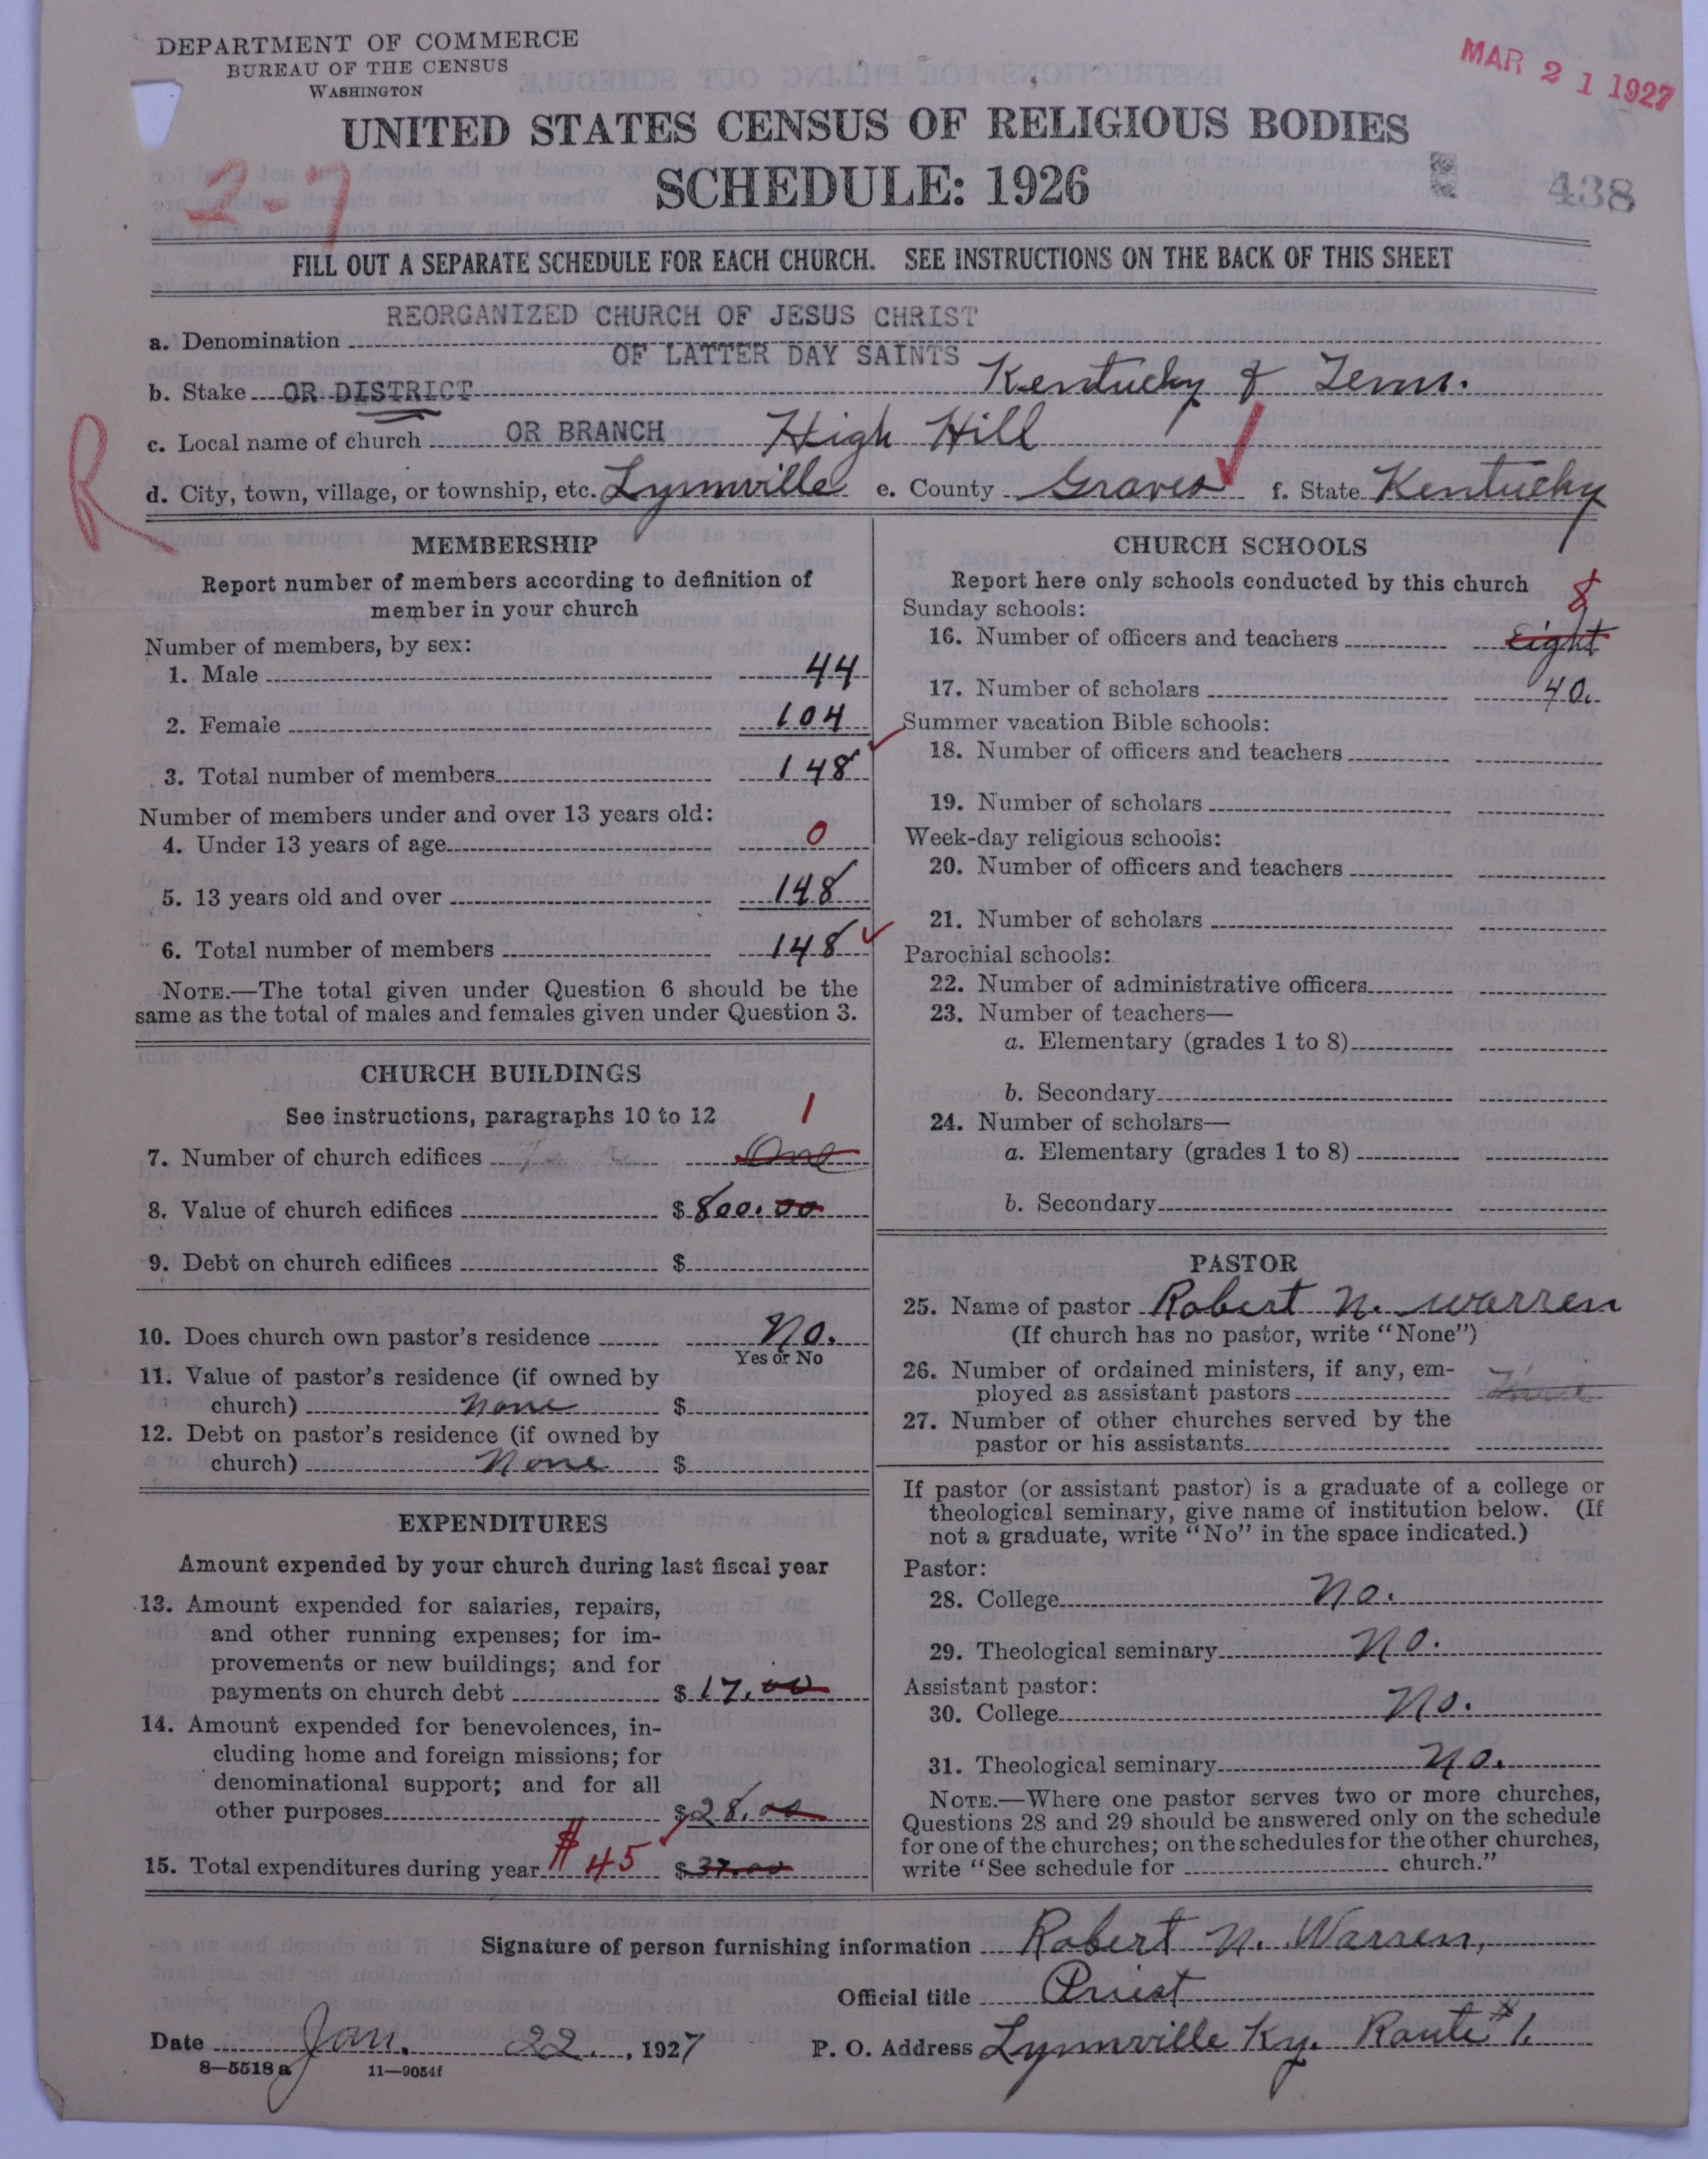 DEPARTMENT OF COMMERCE
BUREAU OF THE CENSUS
WASHINGTON
MAR 21 1927
UNITED STATES CENSUS OF RELIGIOUS BODIES
SCHEDULE: 1926
2-7
438
FILL OUT A SEPARATE SCHEDULE FOR EACH CHURCH. SEE INSTRUCTIONS ON THE BACK OF THIS SHEET
REORGANIZED CHURCH OF JESUS CHRIST
a. Denomination
OF LATTER DAY SAINTS
b. Stake OR DISTRICT Kentucky & Tenn.
R
c. Local name of church OR BRANCH High Hill
d. City, town, village, or township, etc. Lynnville e. County Graves ✓ f. State Kentucky
MEMBERSHIP
Report number of members according to definition of
member in your church
Number of members, by sex:
1. Male 44
2. Female 104
3. Total number of members 148 ✓
Number of members under and over 13 years old:
4. Under 13 years of age 0
5. 13 years old and over 148
6. Total number of members 148 ✓
NOTE.—The total given under Question 6 should be the
same as the total of males and females given under Question 3.
CHURCH BUILDINGS
See instructions, paragraphs 10 to 12
1
7. Number of church edifices One
8. Value of church edifices $ 800.00
9. Debt on church edifices $
10. Does church own pastor's residence No.
Yes or No
11. Value of pastor's residence (if owned by
church) None $
12. Debt on pastor's residence (if owned by
church) None $
EXPENDITURES
Amount expended by your church during last fiscal year
13. Amount expended for salaries, repairs,
and other running expenses; for im-
provements or new buildings; and for
payments on church debt $ 17.00
14. Amount expended for benevolences, in-
cluding home and foreign missions; for
denominational support; and for all
other purposes $ 28.00
15. Total expenditures during year $ 45 ✓ $ 37.00
CHURCH SCHOOLS
Report here only schools conducted by this church
Sunday schools:
8
16. Number of officers and teachers Eight
17. Number of scholars 40.
Summer vacation Bible schools:
18. Number of officers and teachers
19. Number of scholars
Week-day religious schools:
20. Number of officers and teachers
21. Number of scholars
Parochial schools:
22. Number of administrative officers
23. Number of teachers—
a. Elementary (grades 1 to 8)
b. Secondary
24. Number of scholars—
a. Elementary (grades 1 to 8)
b. Secondary
PASTOR
25. Name of pastor Robert N. Warren
(If church has no pastor, write "None")
26. Number of ordained ministers, if any, em-
ployed as assistant pastors
27. Number of other churches served by the
pastor or his assistants
If pastor (or assistant pastor) is a graduate of a college or
theological seminary, give name of institution below. (If
not a graduate, write "No" in the space indicated.)
Pastor:
28. College No.
29. Theological seminary No.
Assistant pastor:
30. College No.
31. Theological seminary No.
NOTE.—Where one pastor serves two or more churches,
Questions 28 and 29 should be answered only on the schedule
for one of the churches; on the schedules for the other churches,
write "See schedule for church."
Signature of person furnishing information Robert N. Warren,
Official title Priest
Date Jan. 22, 1927 P. O. Address Lynnville Ky. Route #1.
8—5518 a 11—9054f